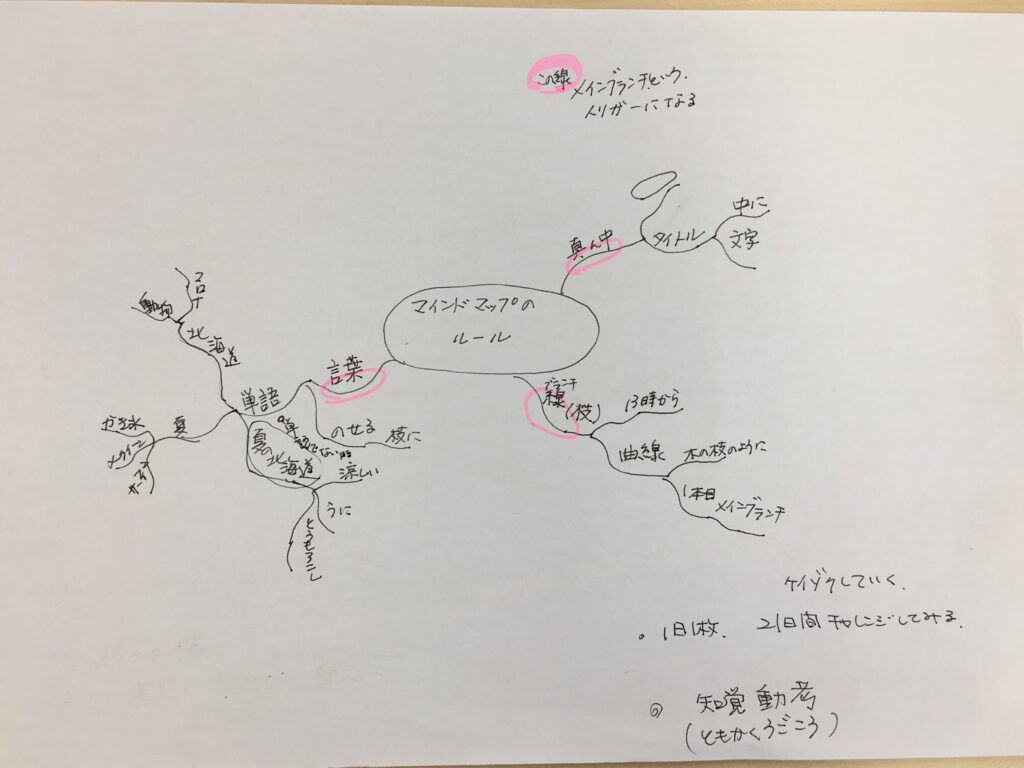 この線
メインブランチという
トリガーになる
真ん中
タイトル
中に
文字
マインドマップの
ルール
ブランチ
線(枝)
13時から
曲線
木の枝のように
1本目
メインブランチ
言葉
単語
のせる
枝に
北海道
動物
夏
かき氷
夏の
北海道
涼しい
うに
とうもろこし
していく.
1日1枚、21日間チャレンジしてみる.
◎ 知覚動考
(ともかくうごこう)